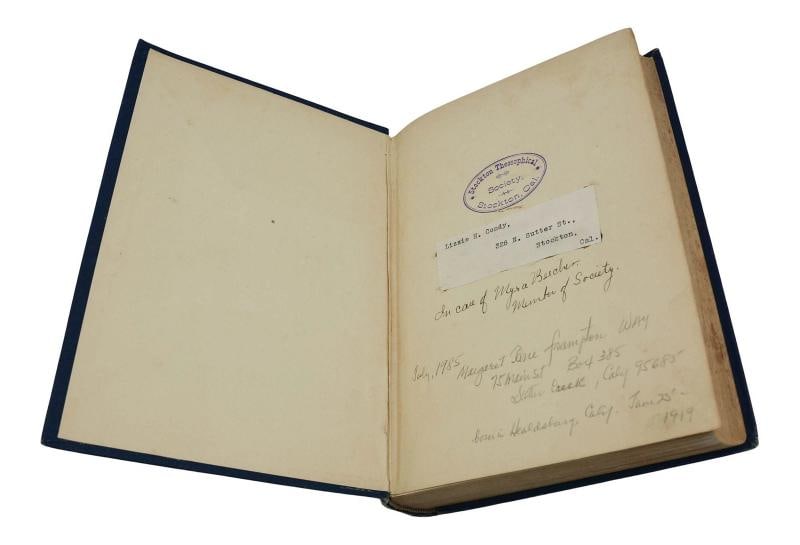 Stockton Theosophical
Society.
Stockton, Cal.
Lizzie H. Condy,
328 N. Sutter St.,
Stockton.
Cal.
In care of Myra Beecher.
Member of Society.
July, 1985 Margaret Jane Frampton Way
75 Main St Box 385
Sutter Creek, Caly 95685
born in Healdsburg, Caly. Jan 25 -
1919